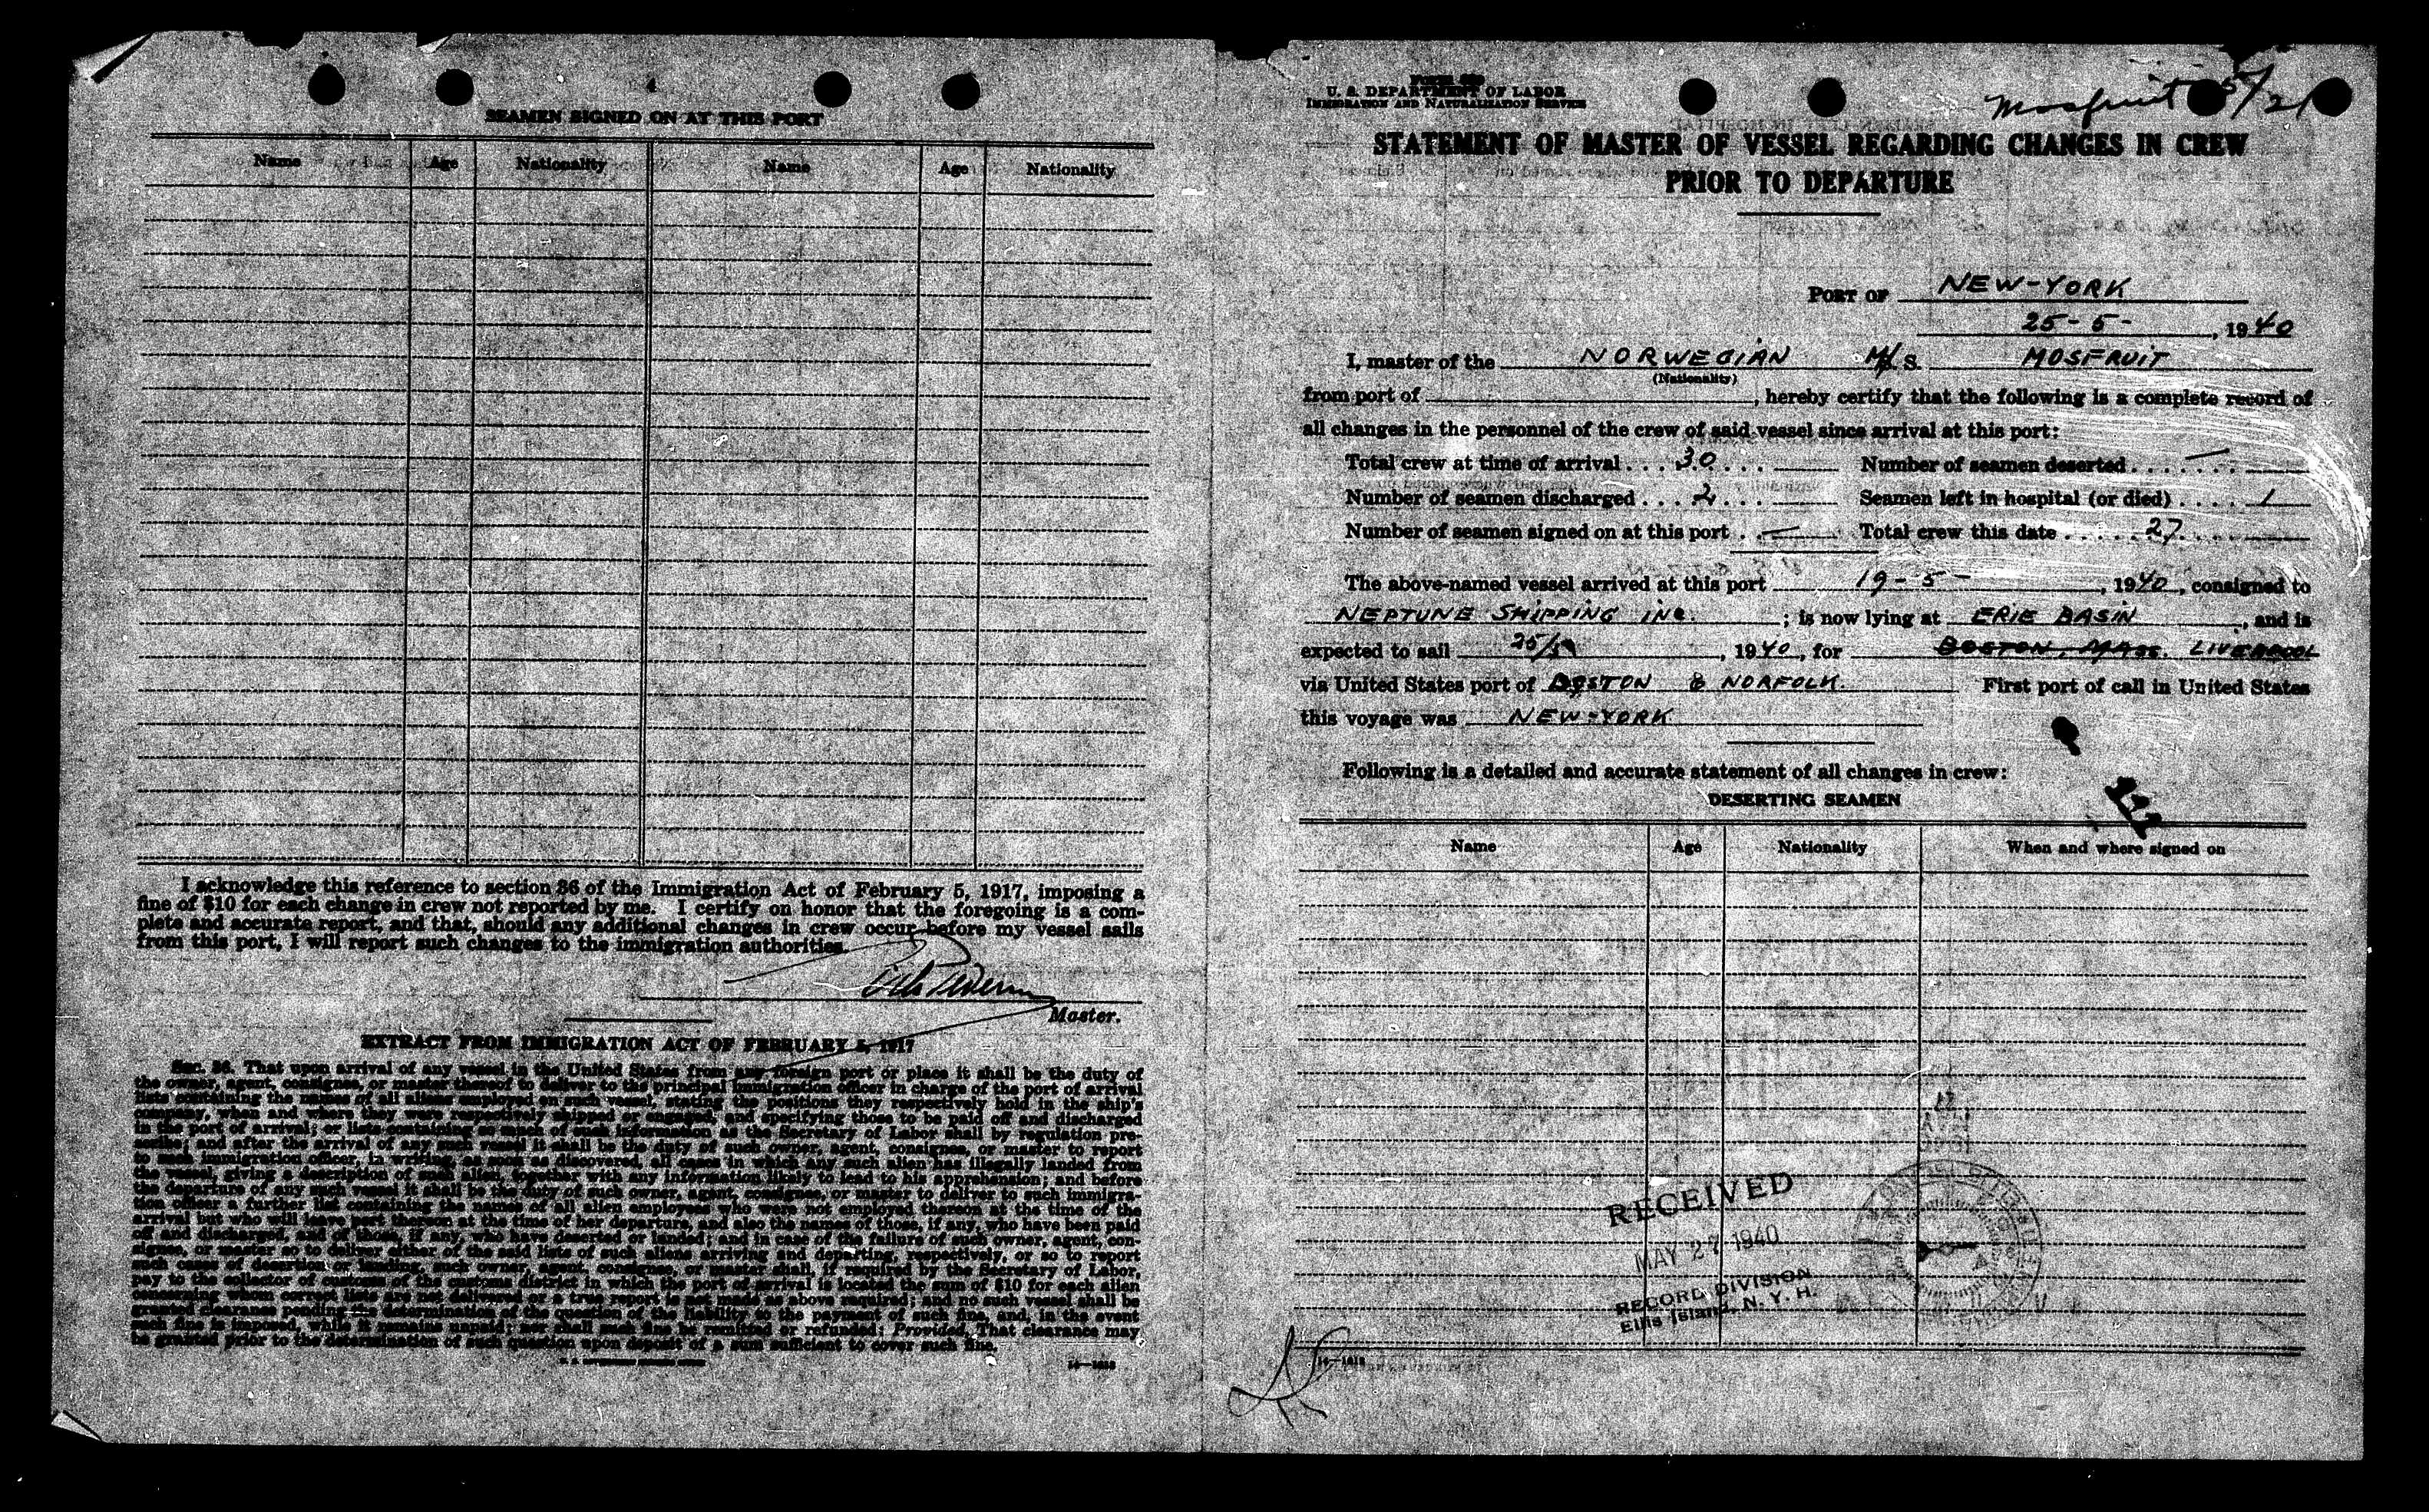 4
SEAMEN SIGNED ON AT THIS PORT
Name Age Nationality Name Age Nationality
I acknowledge this reference to section 36 of the Immigration Act of February 5, 1917, imposing a
fine of $10 for each change in crew not reported by me. I certify on honor that the foregoing is a com-
plete and accurate report, and that, should any additional changes in crew occur before my vessel sails
from this port, I will report such changes to the immigration authorities.
Master.
EXTRACT FROM IMMIGRATION ACT OF FEBRUARY 5, 1917
Sec. 36. That upon arrival of any vessel in the United States from any foreign port or place it shall be the duty of
the owner, agent, consignee, or master thereof to deliver to the principal immigration officer in charge of the port of arrival
lists containing the names of all aliens employed on such vessel, stating the positions they respectively hold in the ship's
company, when and where they were respectively shipped or engaged, and specifying those to be paid off and discharged
in the port of arrival; or lists containing so much of such information as the Secretary of Labor shall by regulation pre-
scribe; and after the arrival of any such vessel it shall be the duty of such owner, agent, consignee, or master to report
to such immigration officer, in writing, as soon as discovered, all cases in which any such alien has illegally landed from
the vessel, giving a description of such alien, together with any information likely to lead to his apprehension; and before
the departure of any such vessel it shall be the duty of such owner, agent, consignee, or master to deliver to such immigra-
tion officer a further list containing the names of all alien employees who were not employed thereon at the time of the
arrival but who will leave port thereon at the time of her departure, and also the names of those, if any, who have been paid
off and discharged, and of those, if any, who have deserted or landed; and in case of the failure of such owner, agent, con-
signee, or master so to deliver either of the said lists of such aliens arriving and departing, respectively, or so to report
such cases of desertion or landing, such owner, agent, consignee, or master shall, if required by the Secretary of Labor,
pay to the collector of customs of the customs district in which the port of arrival is located the sum of $10 for each alien
concerning whom correct lists are not delivered or a true report is not made as above required; and no such vessel shall be
granted clearance pending the determination of the question of the liability to the payment of such fine, and, in the event
such fine is imposed, while it remains unpaid; nor shall such fine be remitted or refunded: Provided, That clearance may
be granted prior to the determination of such question upon deposit of a sum sufficient to cover such fine.
U. S. GOVERNMENT PRINTING OFFICE 14—1613
U. S. DEPARTMENT OF LABOR
IMMIGRATION AND NATURALIZATION SERVICE
Mosfruit 5/21
STATEMENT OF MASTER OF VESSEL REGARDING CHANGES IN CREW
PRIOR TO DEPARTURE
PORT OF NEW-YORK
25-5-, 1940
I, master of the NORWEGIAN M/S. MOSFRUIT
(Nationality)
from port of , hereby certify that the following is a complete record of
all changes in the personnel of the crew of said vessel since arrival at this port:
Total crew at time of arrival . . . 30 . . . . Number of seamen deserted . . . . — . . .
Number of seamen discharged . . . 2 . . . Seamen left in hospital (or died) . . . . 1
Number of seamen signed on at this port . . — Total crew this date . . . . . 27 . . . .
The above-named vessel arrived at this port 19-5-, 1940, consigned to
NEPTUNE SHIPPING INC. ; is now lying at ERIE BASIN , and is
expected to sail 25/5, 1940, for BOSTON, MASS. LIVERPOOL
via United States port of BOSTON & NORFOLK. First port of call in United States
this voyage was NEW-YORK
Following is a detailed and accurate statement of all changes in crew:
DESERTING SEAMEN
Name Age Nationality When and where signed on
RECEIVED
MAY 27 1940
RECORD DIVISION
Ellis Island, N. Y. H.
14—1613